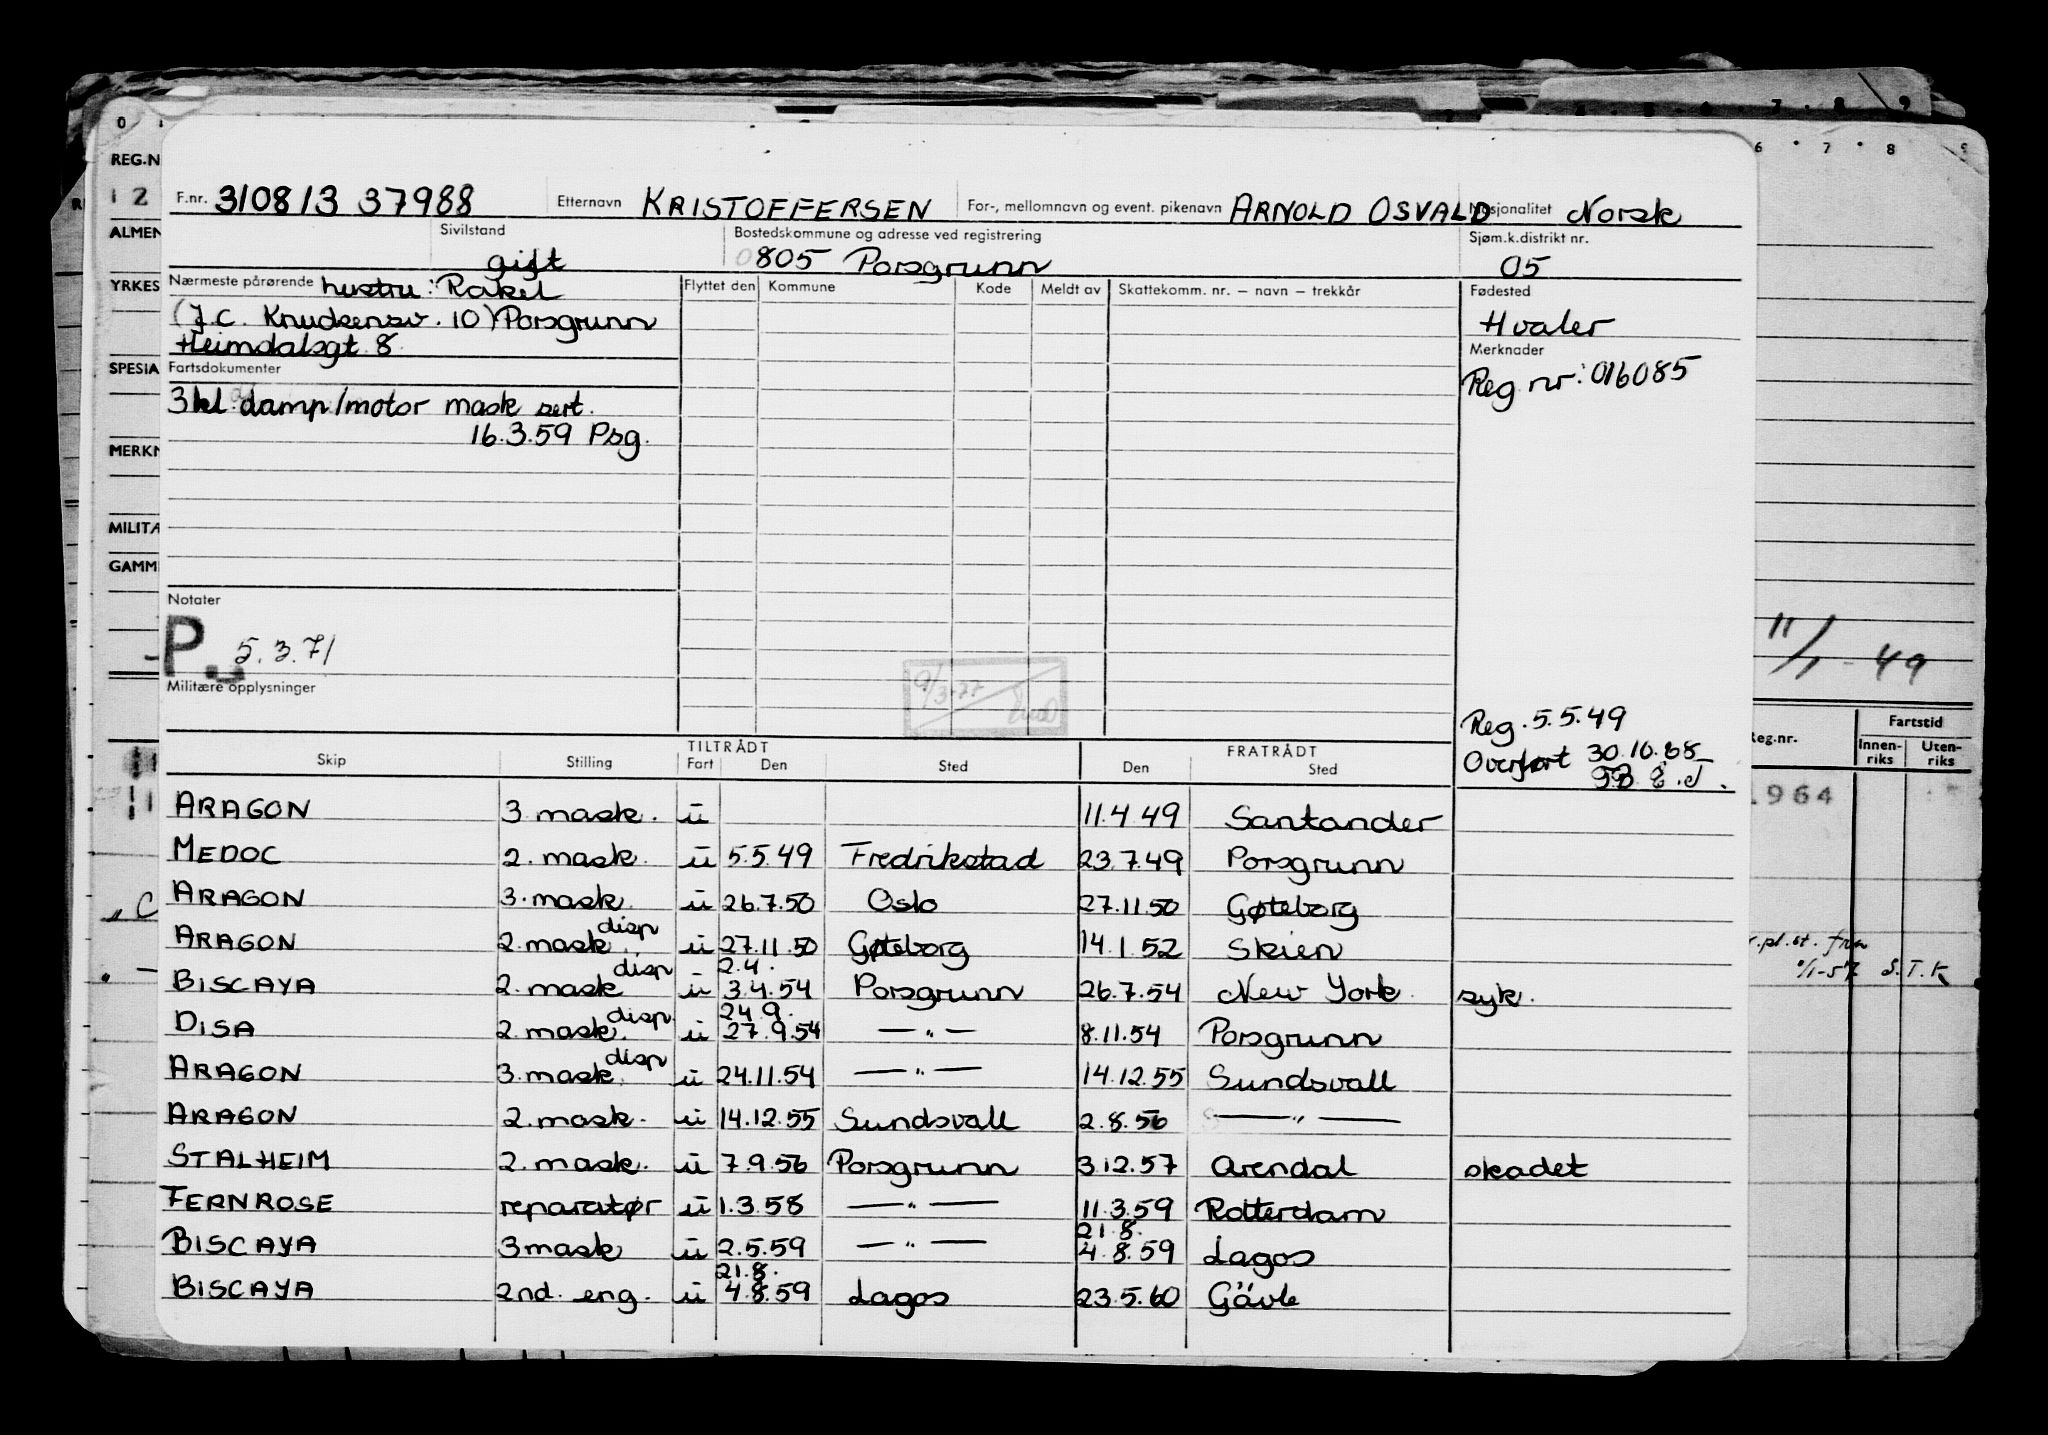 F.nr. 310813 37988 Etternavn KRISTOFFERSEN For-, mellomnavn og event. pikenavn ARNOLD OSVALD Nasjonalitet Norsk
Sivilstand gift Bostedskommune og adresse ved registrering 0805 Porsgrunn Sjøm.k.distrikt nr. 05
Nærmeste pårørende hustru: Rakel Flyttet den Kommune Kode Meldt av Skattekomm. nr. – navn – trekkår Fødested
(J.C. Knudsensv. 10) Porsgrunn Hvaler
Heimdalsgt. 8. Merknader
Fartsdokumenter Reg. nr: 016085
3kl. damp/motor mask sert.
16.3.59 Psg.
Notater
P. 5.3.71
Militære opplysninger
9/3-77
Reg. 5.5.49
Overført 30.10.68
TILTRÅDT FRATRÅDT
Skip Stilling Fart Den Sted Den Sted
ARAGON 3 mask. u 11.4.49 Santander
MEDOC 2. mask. u 5.5.49 Fredrikstad 23.7.49 Porsgrunn
ARAGON 3. mask. u 26.7.50 Oslo 27.11.50 Gøteborg
ARAGON 2. mask. disp u 27.11.50 Gøteborg 14.1.52 Skien
2.4.
BISCAYA 2. mask disp u 3.4.54 Porsgrunn 26.7.54 New York syk.
24.9.
DISA 2. mask. disp u 27.9.54 — " — 8.11.54 Porsgrunn
ARAGON 3. mask. disp u 24.11.54 — " — 14.12.55 Sundsvall
ARAGON 2. mask. u 14.12.55 Sundsvall 2.8.56 — " —
STALHEIM 2. mask. u 7.9.56 Porsgrunn 3.12.57 Arendal skadet
FERNROSE reparatør u 1.3.58 — " — 11.3.59 Rotterdam
21.8.
BISCAYA 3 mask u 2.5.59 — " — 4.8.59 Lagos
21.8.
BISCAYA 2nd. eng. u 4.8.59 Lagos 23.5.60 Gävle
REG.N
12
ALMEN
YRKES
SPESIA
MERKN
MILITÆ
GAMM
6 7 8 9
11/1-49
Reg.nr. Fartstid
Innen-riks Uten-riks
1964
S.T.K